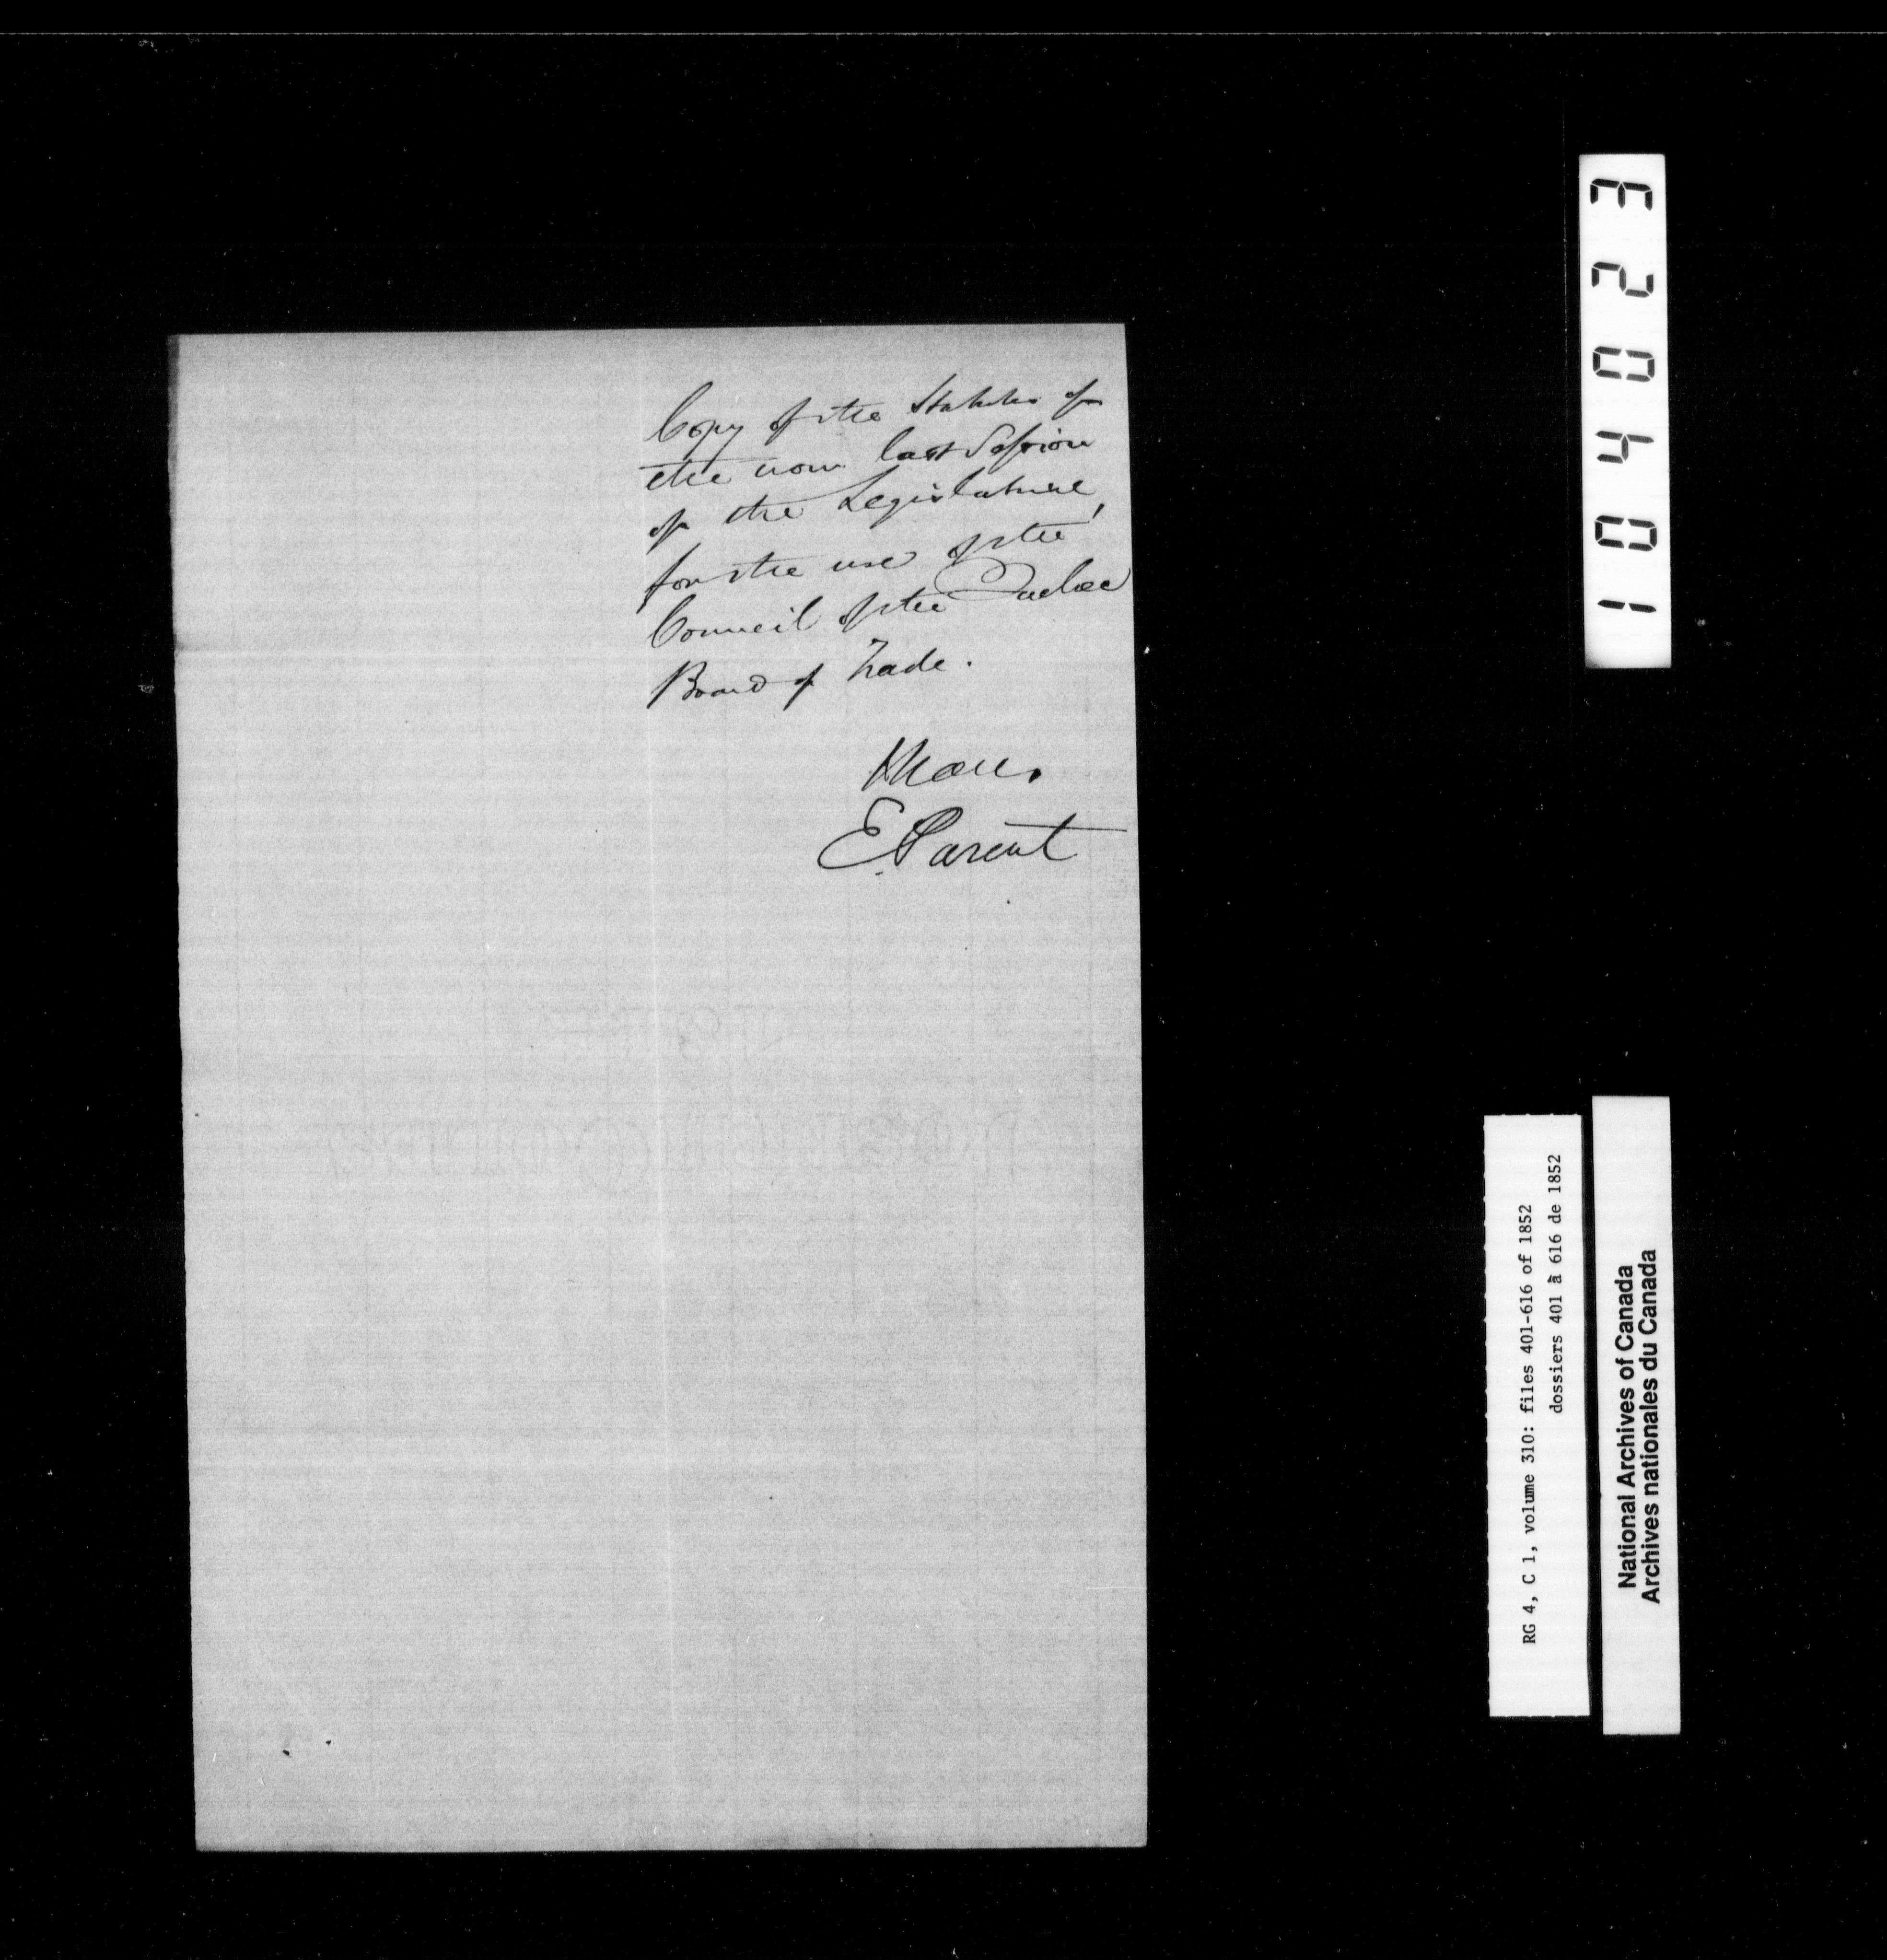 Copy of the Statutes of
the now last Session
of the Legislature,
for the use of the
Council of the Quebec
Board of Trade.
I have.
E. Parent
104023
RG 4, C 1, volume 310: files 401-616 of 1852
dossiers 401 à 616 de 1852
National Archives of Canada
Archives nationales du Canada